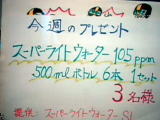 今週のプレゼント
スーパーライトウォーター105ppm
500mlボトル6本1セット
3名様
提供:スーパーライトウォーターSL